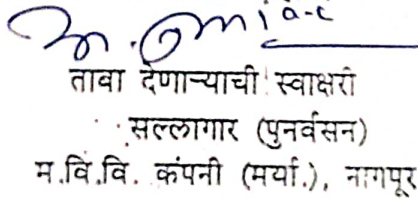 तावा देणाऱ्याची स्वाक्षरी
सल्लागार (पुनर्वसन)
म.वि.वि. कंपनी (मर्या.), नागपूर